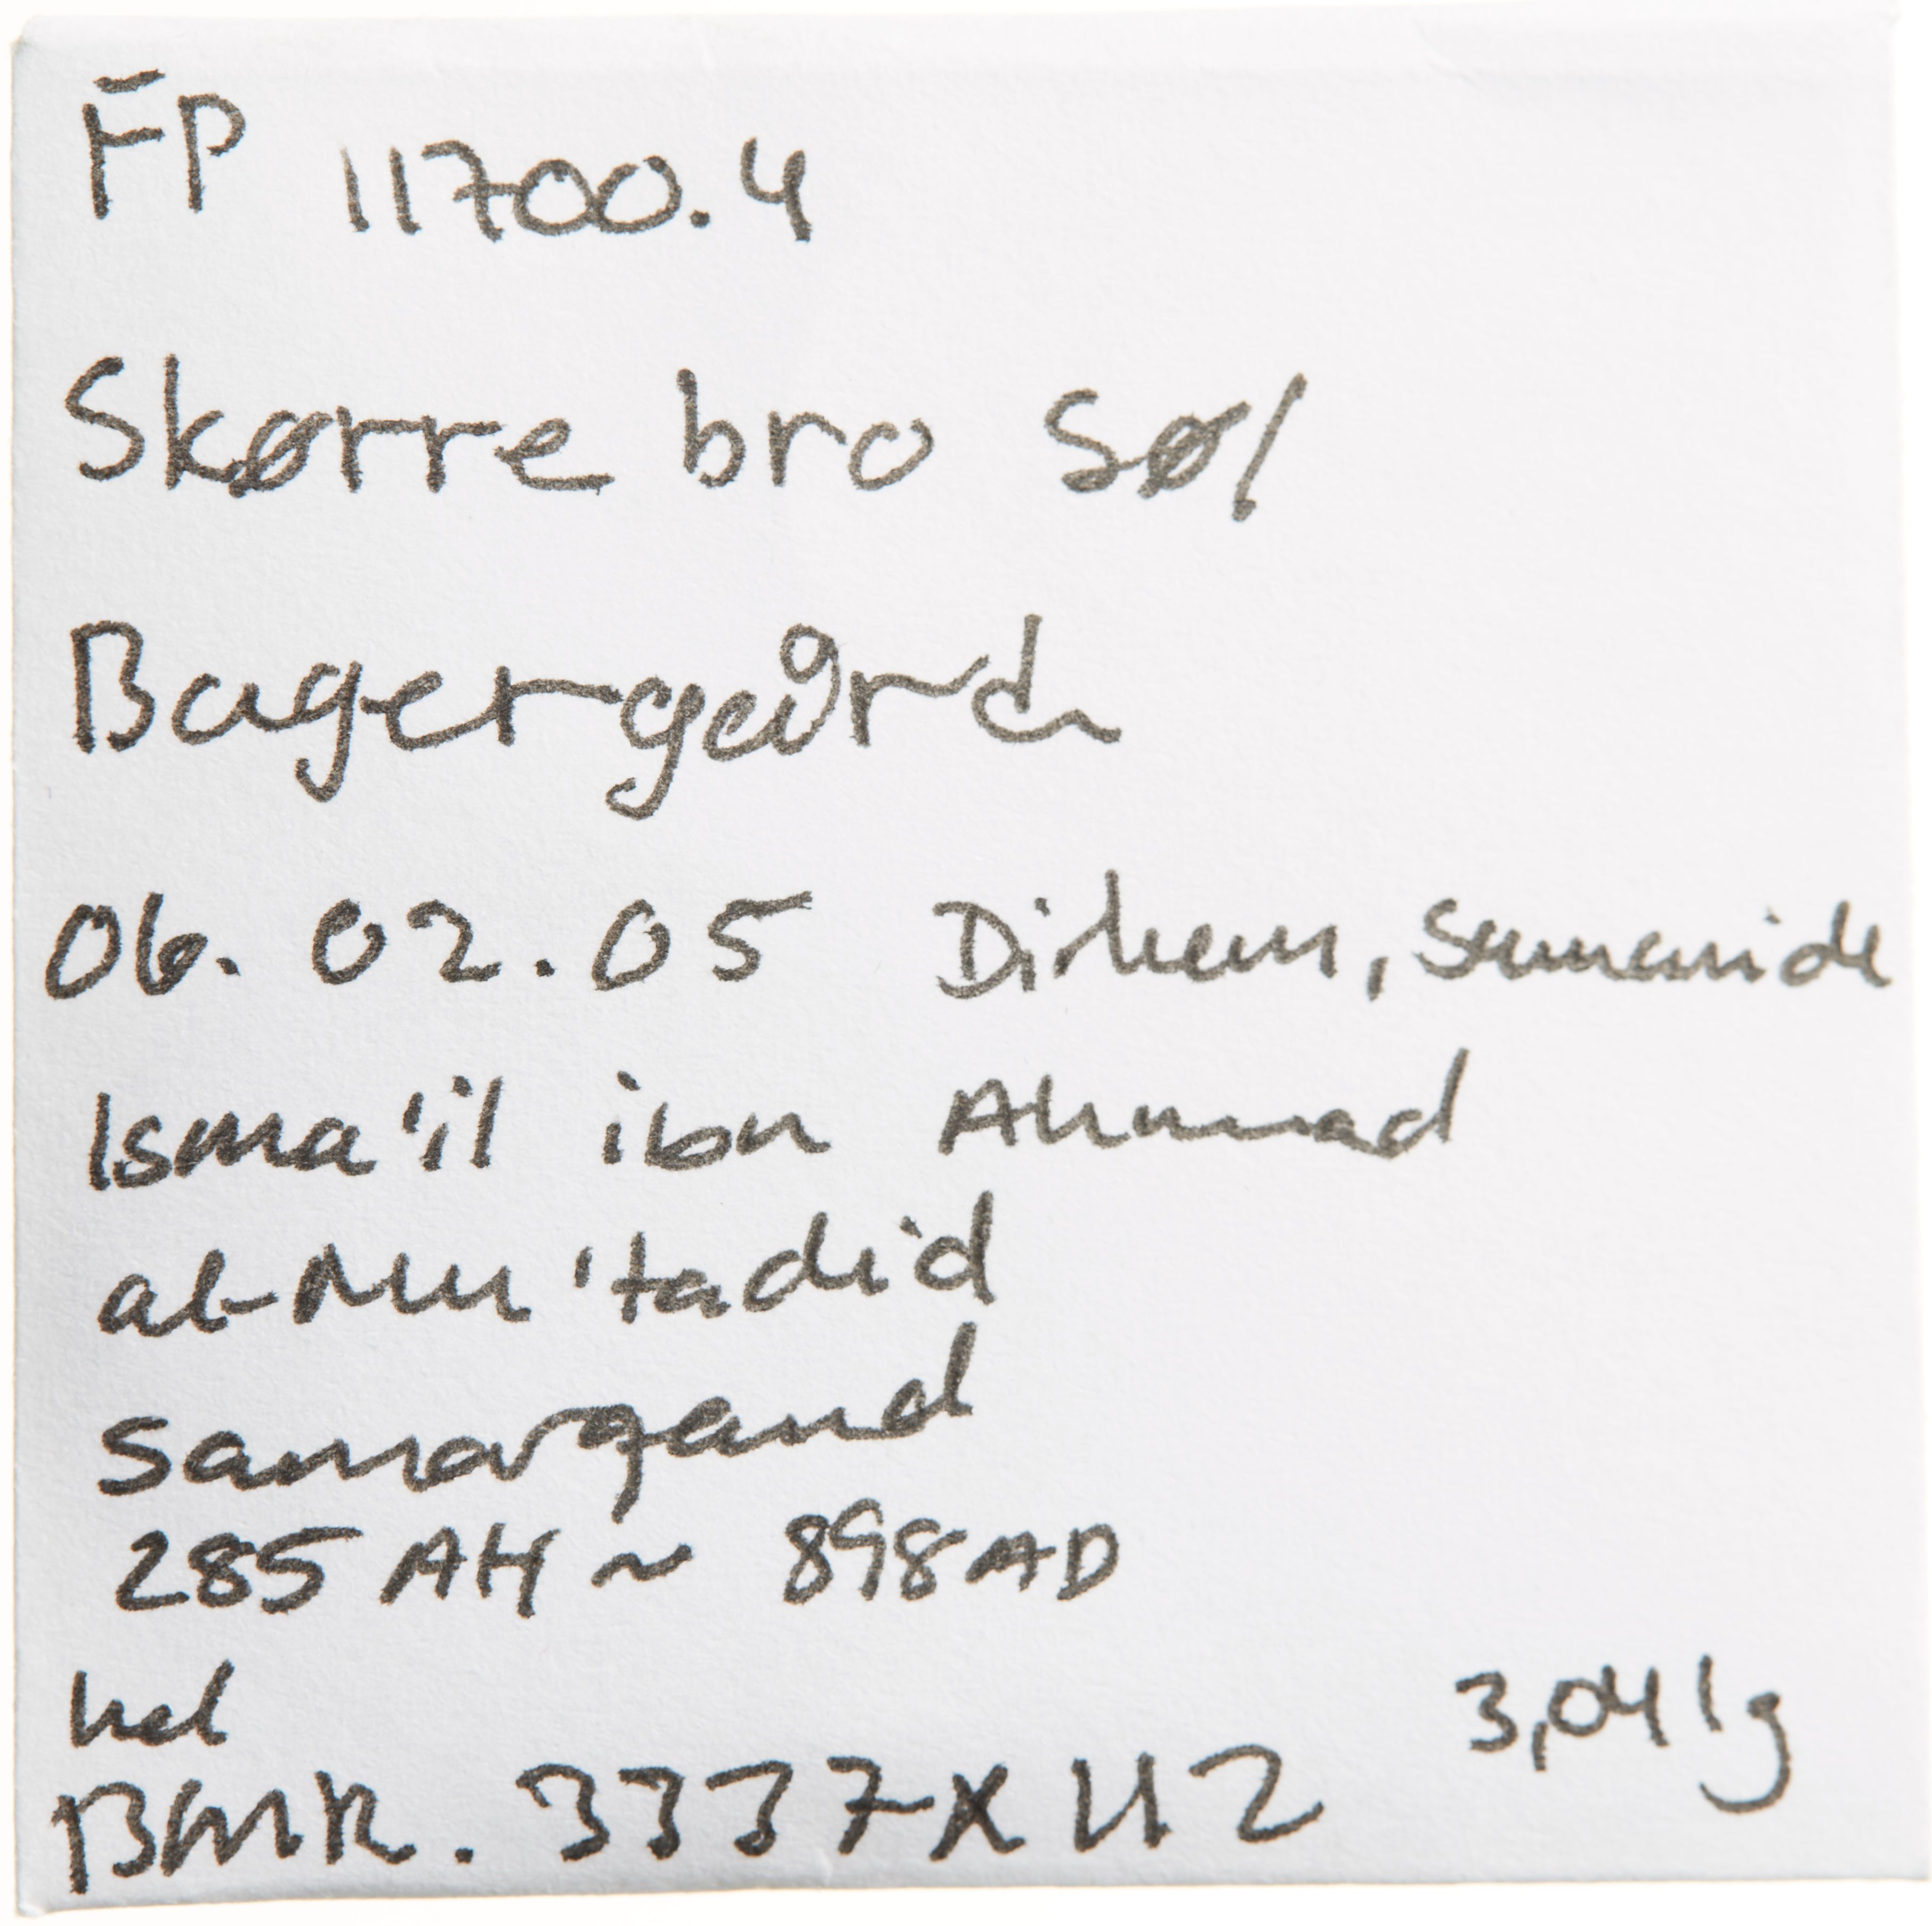 FP 11700.4
Skørre bro Sø/
Bagergård
06.02.05 Dirhem, Samanide
Isma'il ibn Ahmad
al-Mu'tadid
Samarqand
285 AH ~ 898 AD
hel 3,041g
BMR. 3337X112